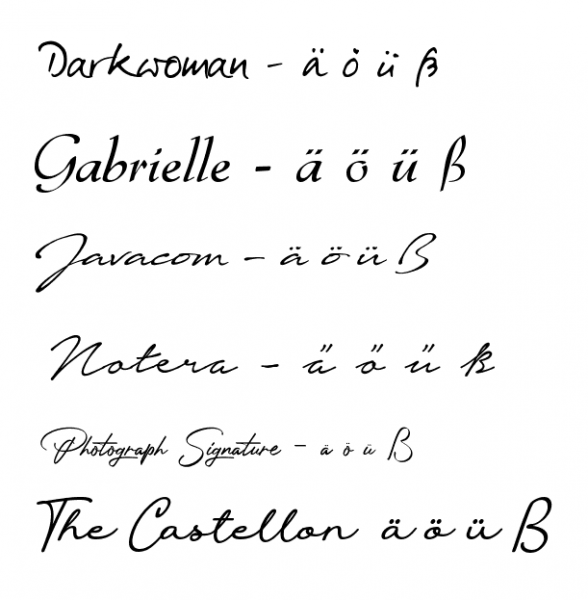 Darkwoman - ä ö ü ß
Gabrielle - ä ö ü ß
Javacom - ä ö ü ß
Notera - ä ö ü ß
Photograph Signature - ä ö ü ß
The Castellon ä ö ü ß